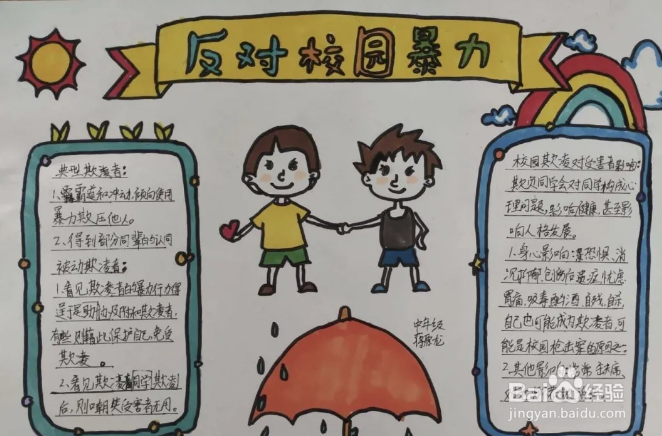 反对校园暴力
典型欺凌者：
1、霸道和冲动，倾向使用
暴力欺压他人。
2、得到部分同辈的认同
被动欺凌者：
1、看见欺凌者的暴力行为便
有些只藉此保护自己，免受
欺凌。
2、看见欺凌者同学欺凌
后，则嘲笑受害者无用。
中年级
校园欺凌对受害者影响：
欺负同学会对同学构成心
理问题，影响健康，甚至影
响人格发展。
1、身心影响：恐惧、消
胃痛，吸毒，酗酒，自残，自杀，
自己也可能成为欺凌者，可
能是校园枪击案的原因之一。
2、其他影响：
Baidu经验
jingyan.baidu.com